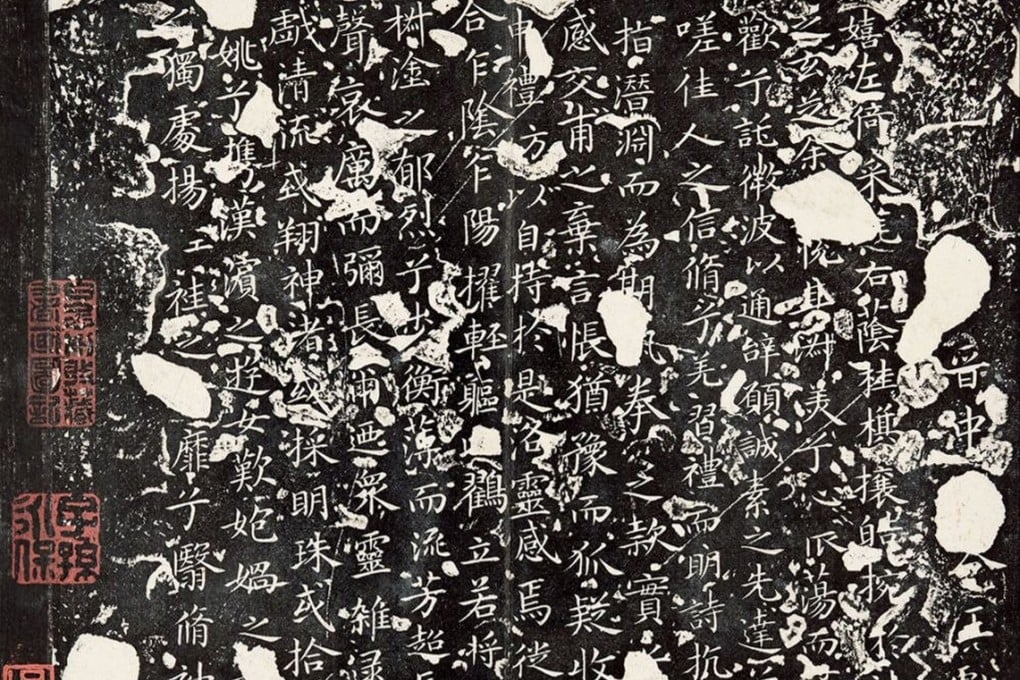 晉中令王獻
嬉左倚采旄右蔭桂旗攘皓捥於
之玄芝余悅其淑美兮心振蕩而
歡兮託微波以通辭願誠素之先達
嗟佳人之信脩兮羌習禮而明詩抗
指潛淵而為期執拳之款實
感交甫之棄言悵猶豫而狐疑收
申禮防以自持於是洛靈感焉徙
合乍陰乍陽擢輕軀以鶴立若將
椒塗之郁烈兮步衡薄而流芳超
聲哀厲而彌長爾迺眾靈雜
戲清流或翔神渚或採明珠或拾
姚兮攜漢濱之遊女歎匏媧之
獨處揚袿之靡兮翳脩袖
子孫永保